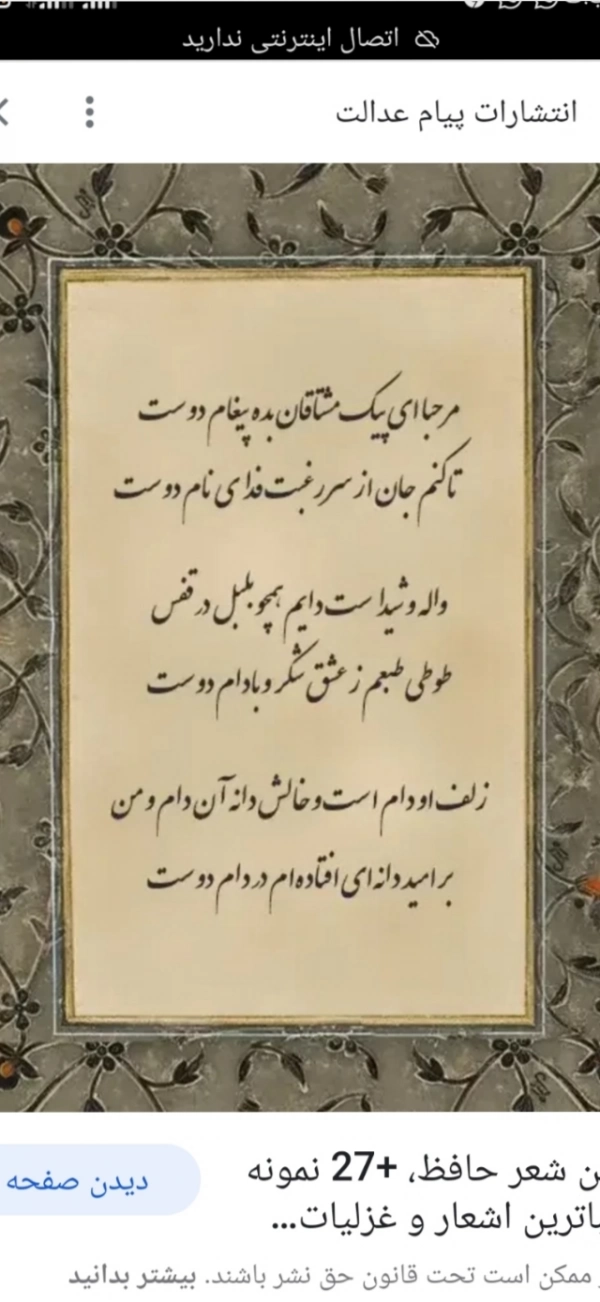 اتصال اینترنتی ندارید
انتشارات پیام عدالت
مرحبا ای پیک مشتاقان بده پیغام دوست
تا کنم جان از سر رغبت فدای نام دوست
واله و شیدا ست دایم همچو بلبل در قفس
طوطی طبعم ز عشق شکر و بادام دوست
زلف او دام است و خالش دانه آن دام و من
بر امید دانه ای افتاده ام در دام دوست
شعر حافظ، +27 نمونه
دیدن صفحه
اشعار و غزلیات...
ممکن است تحت قانون حق نشر باشند. بیشتر بدانید